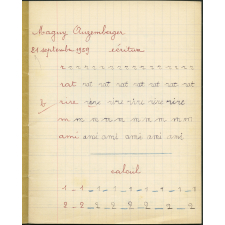 Maguy Ruzenberger
21 septembre 1959 écriture
r r r r r r r r r r r r r
rat rat rat rat rat rat rat rat
rire rire rire rire rire rire
m m m m m m m m m
ami ami ami ami ami ami
calcul
1 1 1 1 1 1 1 1
2 2 2 2 2 2 2